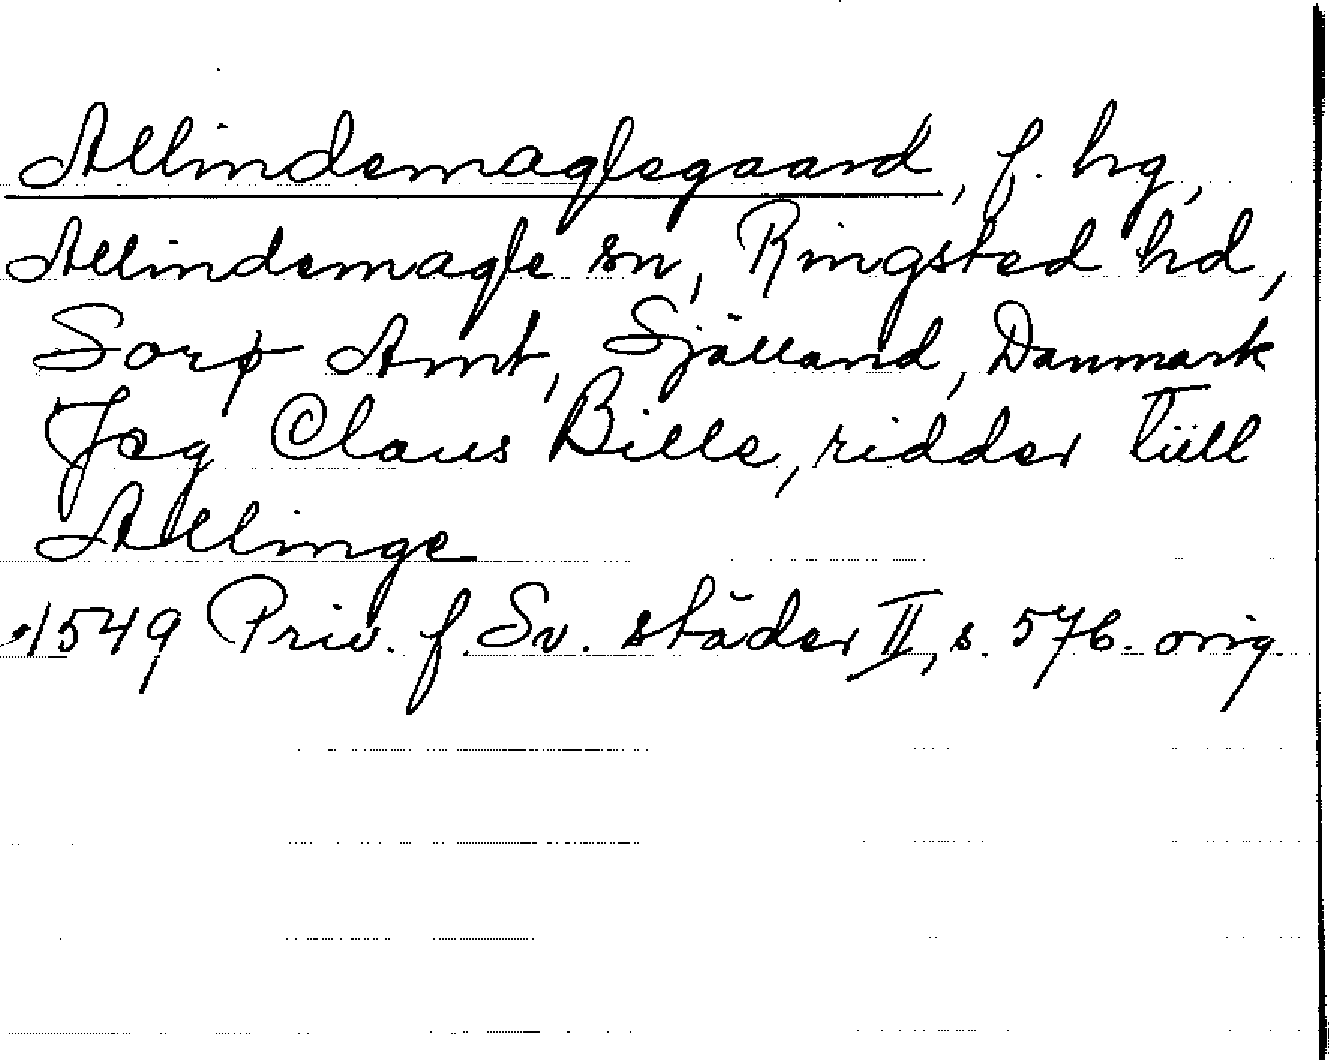 Allindemaglegaard, f. hg,
Allindemagle sn, Ringsted hd,
Sorø Amt, Själland, Danmark
Jeg Claus Bille, ridder tiill
Allinge
1549 Priv. f. Sv. städer II, s. 576. orig.